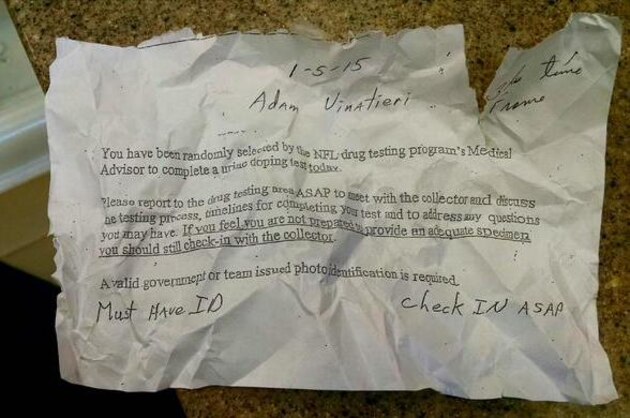 1-5-15
Adam Vinatieri
time
Frame
You have been randomly selected by the NFL drug testing program's Medical
Advisor to complete a urine doping test today.
Please report to the drug testing area ASAP to meet with the collector and discuss
he testing process, timelines for completing your test and to address any questions
you may have. If you feel you are not prepared to provide an adequate specimen
you should still check-in with the collector.
A valid government or team issued photo identification is required.
Must Have ID
Check IN ASAP